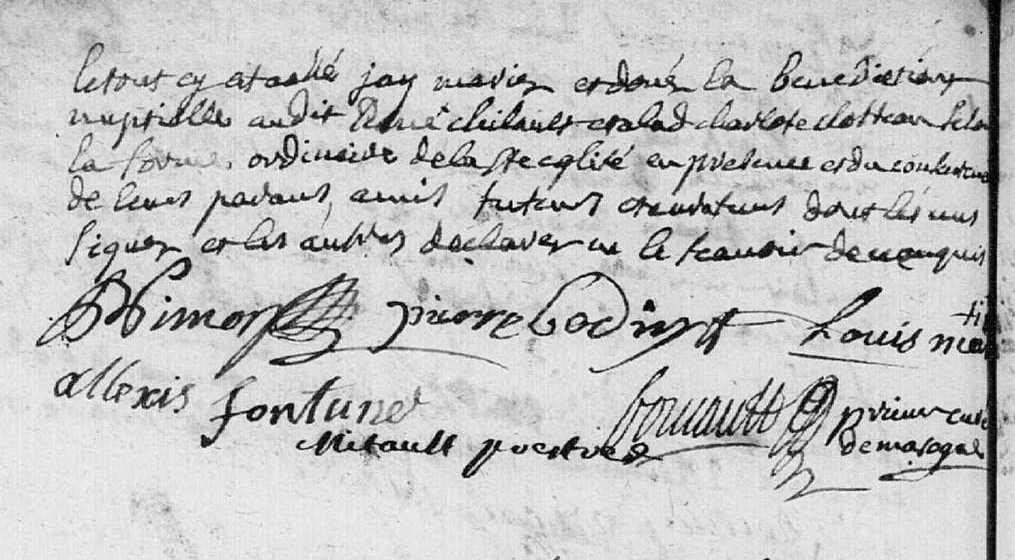 le tout cy ataché jay mariez et doné la benediction
nuptialle audit René chilault et alad charlote clotteau selon
la forme ordinaire de la ste eglise en presence et du consentem
de leurs parans amis tuteurs et curateurs dont les uns
signer et les autres declarer ne le scauoir de ce enquis
Simon pierre bodin Louis mar
allexis fortuné bouault prieur curé
Mitault prestre de marsogne